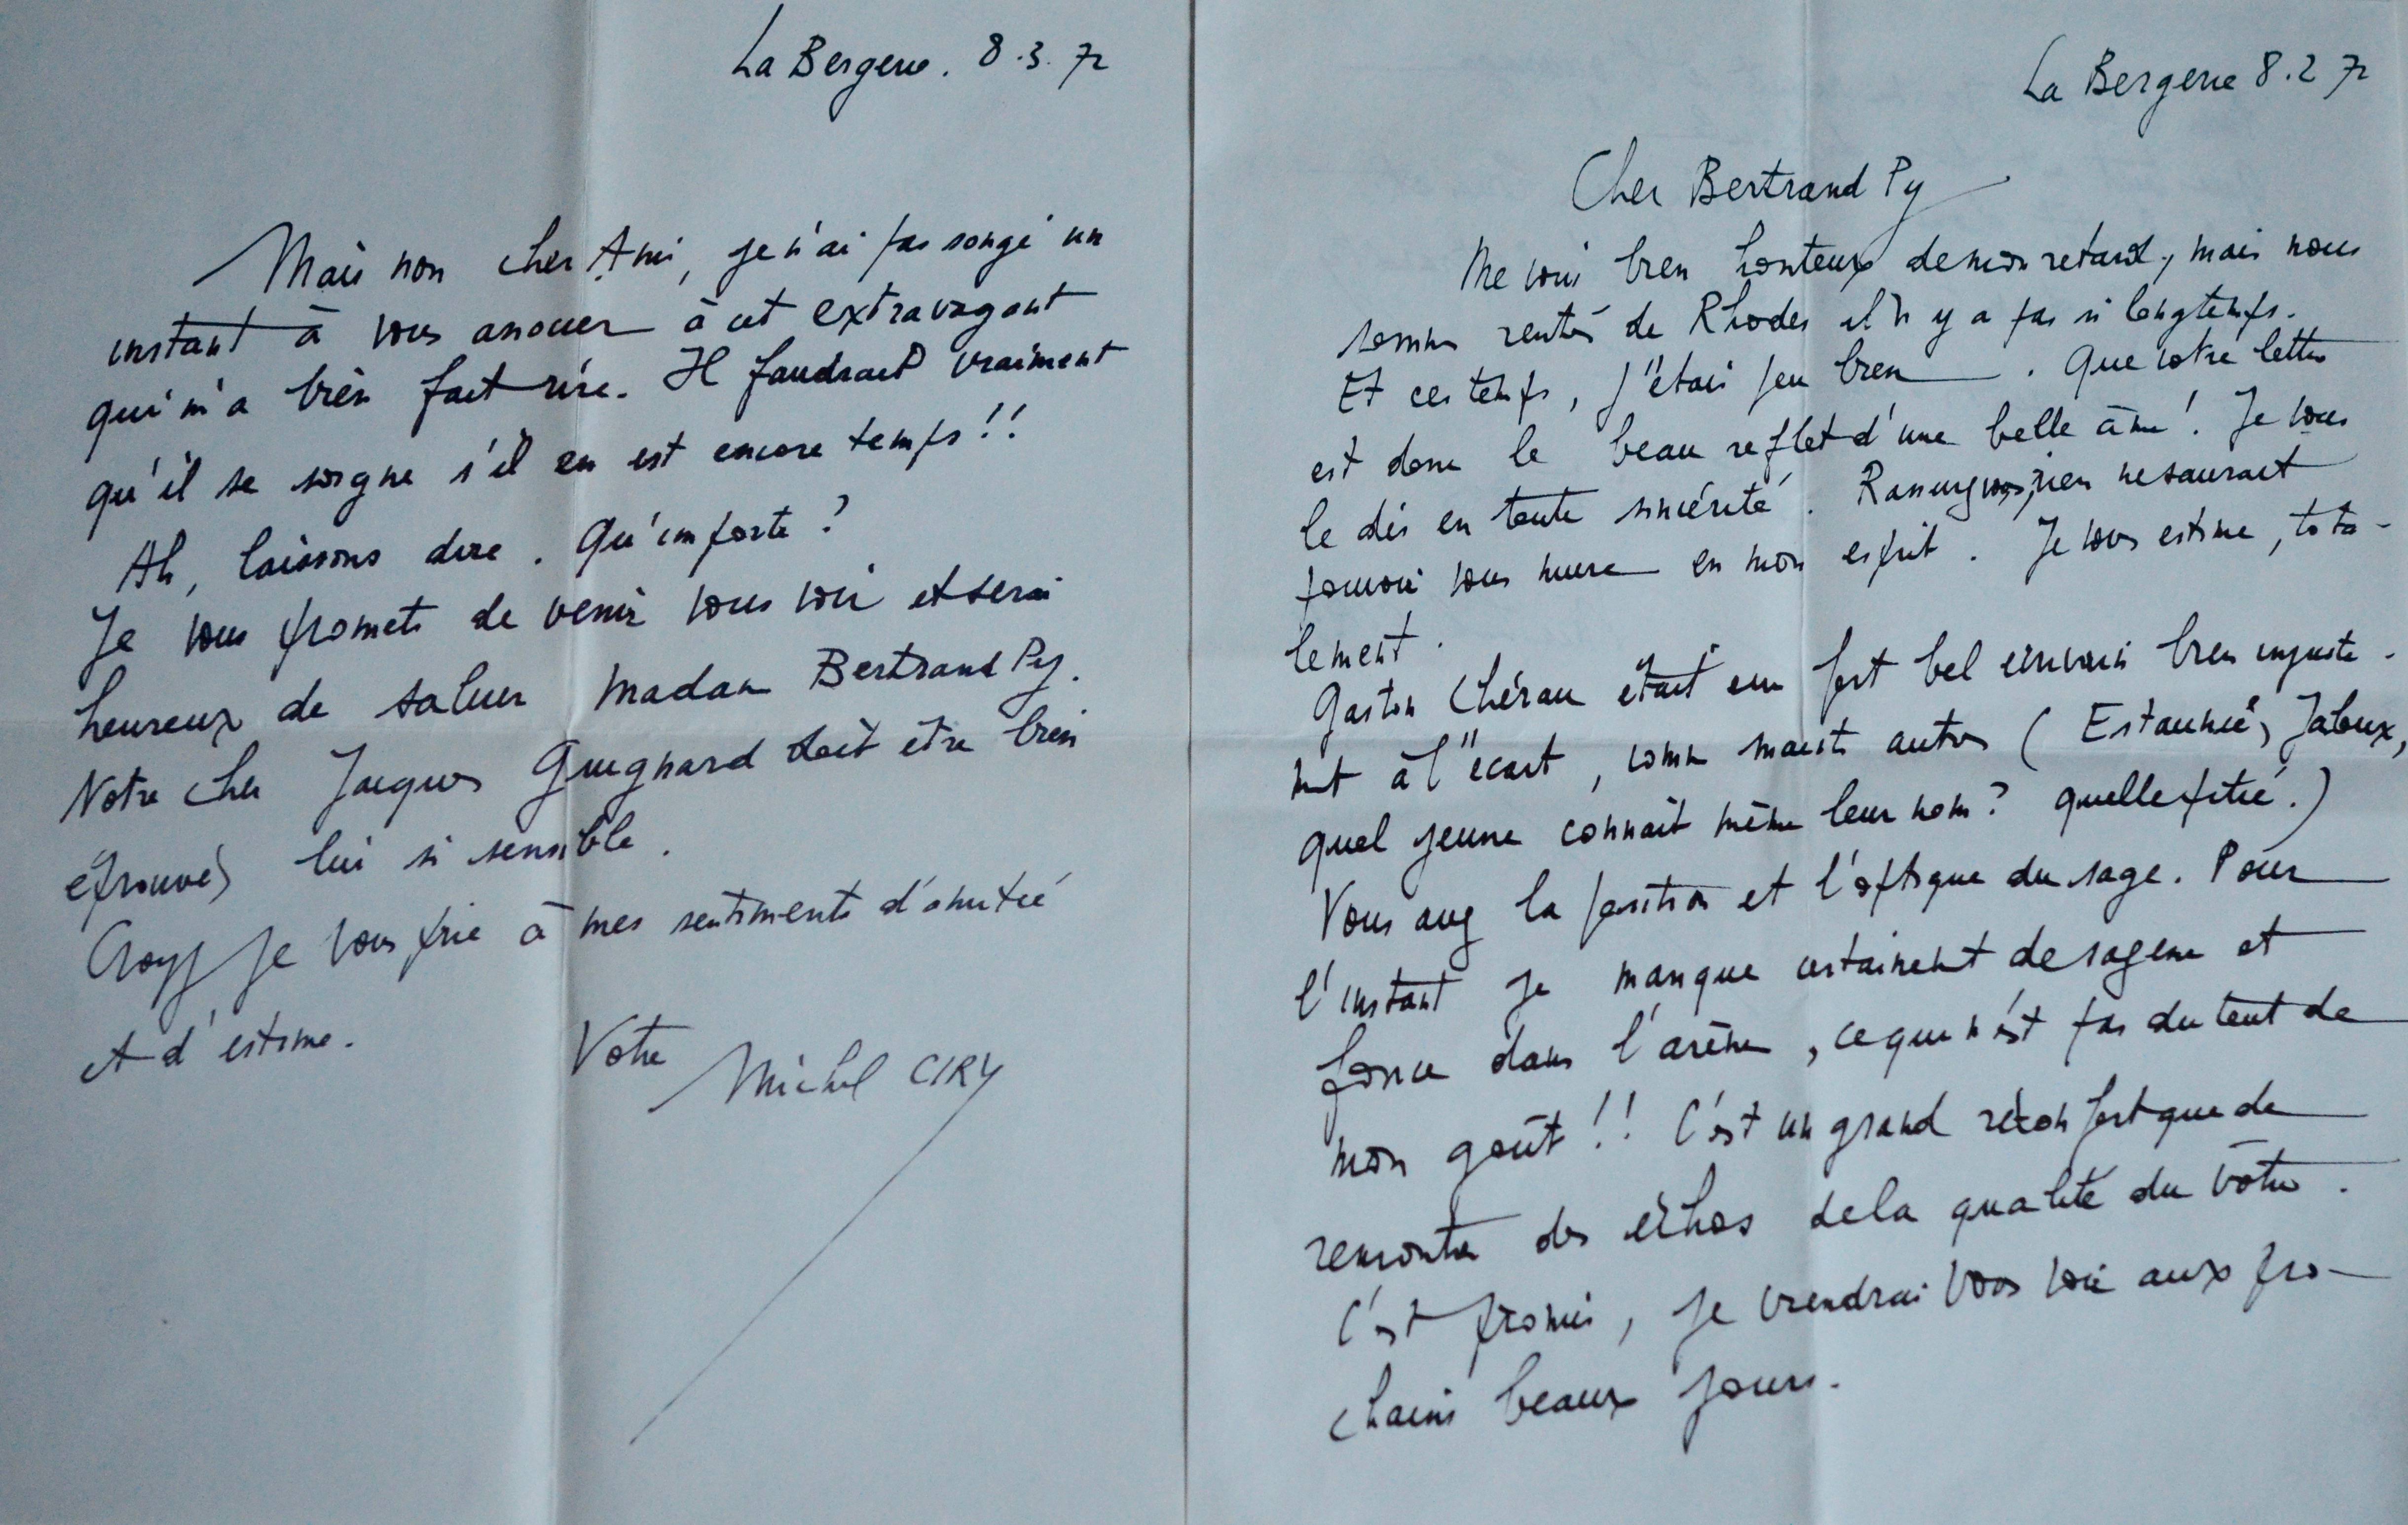 La Bergerie. 8.3.72
Mais non cher Ami, je n'ai pas songé un
instant à vous associer à cet extravagant
qui m'a bien fait rire. Il faudrait vraiment
qu'il se soigne s'il en est encore temps !!
Ah, laissons dire. Qu'importe ?
Je vous promets de venir vous voir et serai
heureux de saluer Madame Bertrand Py.
Notre cher Jacques Guignard doit être bien
éprouvé, lui si sensible.
Croyez je vous prie à mes sentiments d'amitié
et d'estime.
Votre
Michel CIRY
La Bergerie 8.2 72
Cher Bertrand Py
Me voici bien honteux de mon retard, mais nous
sommes rentrés de Rhodes il n'y a pas si longtemps.
Et ces temps, j'étais peu bien. Que votre lettre
est donc le beau reflet d'une belle âme ! Je vous
le dis en toute sincérité. Rassurez-vous, rien ne saurait
pouvoir vous nuire en mon esprit. Je vous estime, tota-
lement.
Gaston Chérau était un fort bel écrivain bien injuste-
ment à l'écart, comme maints autres (Estaunié, Jaloux,
quel jeune connait même leur nom ? quelle pitié.)
Vous avez la position et l'optique du sage. Pour
l'instant je manque certainement de sagesse et
fonce dans l'arène, ce qui n'est pas du tout de
mon goût !! C'est un grand réconfort que de
rencontrer des échos de la qualité du vôtre.
C'est promis, je viendrai vous voir aux pro-
chains beaux jours.